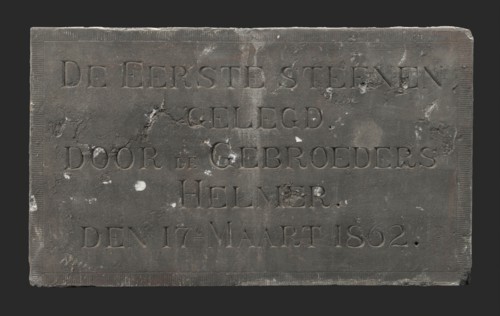 DE EERSTE STEENEN,
GELEGD.
DOOR de GEBROEDERS
HELMER.
DEN 17 MAART 1802.